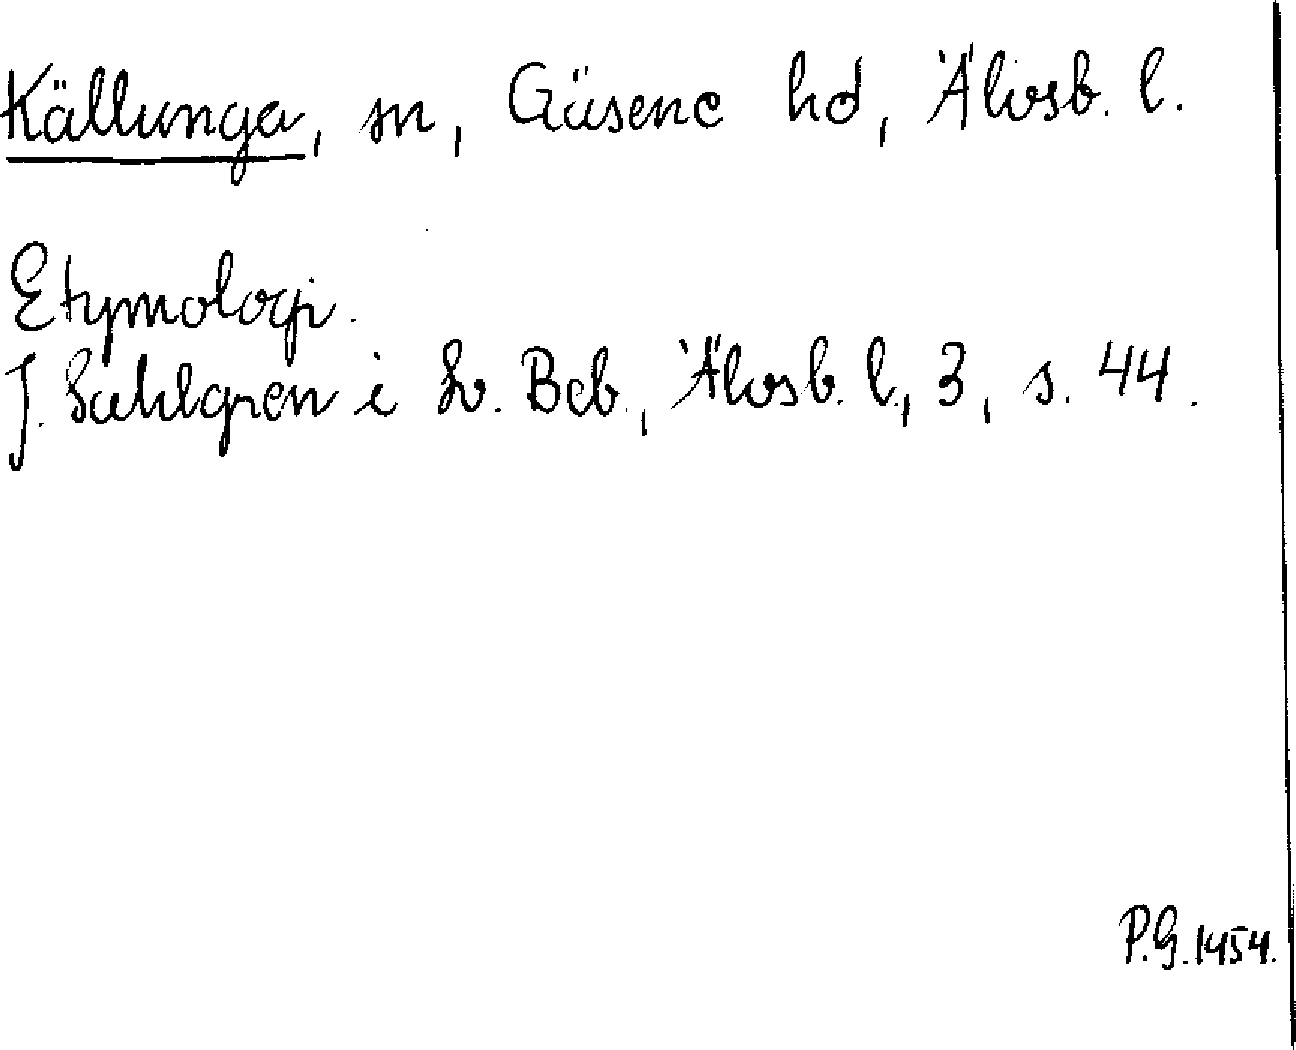 Källunga, sn, Gäsene hd, Älvsb. l.
Etymologi.
J. Sahlgren i Sv. Beb., Älvsb. l., 3, s. 44.
P.G. 1954.